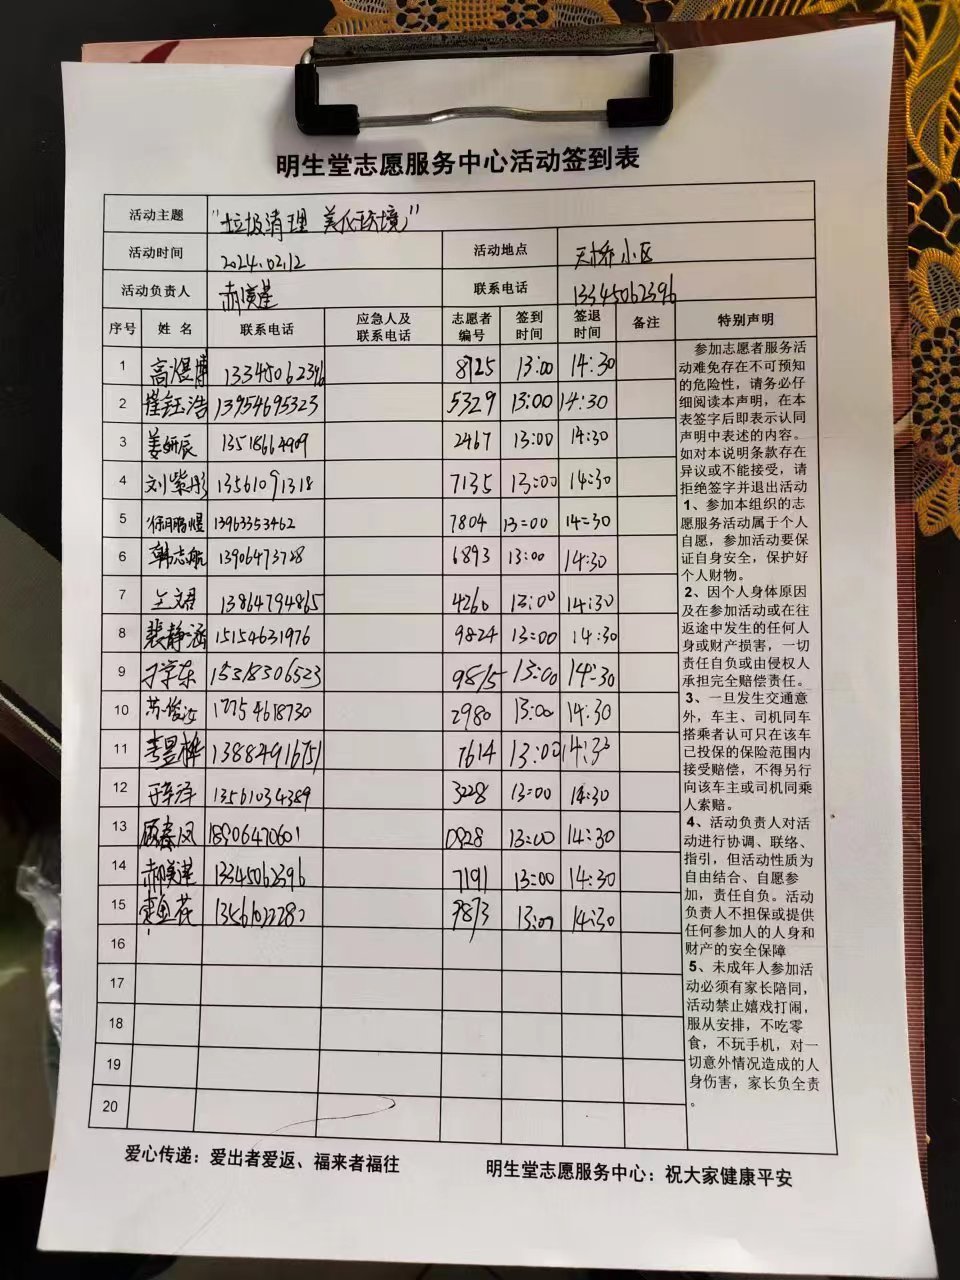 明生堂志愿服务中心活动签到表
活动主题 "垃圾清理 美化环境"
活动时间 2024.02.12 活动地点 天桥小区
活动负责人 联系电话 13345062396
序号 姓名 联系电话 应急人及联系电话 志愿者编号 签到时间 签退时间 备注 特别声明
1 高煜博 13345062396 8725 13:00 14:30
2 崔钰浩 13954695323 5329 13:00 14:30
3 姜妍辰 13518664909 2467 13:00 14:30
4 刘紫彤 13561091318 7135 13:00 14:30
5 13963353462 7804 13:00 14:30
6 韩志航 13906473728 6893 13:00 14:30
7 13864794865 4260 13:00 14:30
8 裴静涵 15154631976 9824 13:00 14:30
9 15318306523 9815 13:00 14:30
10 17754618730 2980 13:00 14:30
11 13884916751 7614 13:00 14:33
12 13561034389 3228 13:00 14:30
13 顾秦凤 18906470601 0928 13:00 14:30
14 13345062396 7191 13:00 14:30
15 13:00 14:30
16
17
18
19
20
参加志愿者服务活
动难免存在不可预知
的危险性，请务必仔
细阅读本声明，在本
表签字后即表示认同
声明中表述的内容。
如对本说明条款存在
异议或不能接受，请
拒绝签字并退出活动
1、参加本组织的志
愿服务活动属于个人
自愿，参加活动要保
证自身安全，保护好
个人财物。
2、因个人身体原因
及在参加活动或在往
返途中发生的任何人
身或财产损害，一切
责任自负或由侵权人
承担完全赔偿责任。
3、一旦发生交通意
外，车主、司机同车
搭乘者认可只在该车
已投保的保险范围内
接受赔偿，不得另行
向该车主或司机同乘
人索赔。
4、活动负责人对活
动进行协调、联络、
指引，但活动性质为
自由结合、自愿参
加，责任自负。活动
负责人不担保或提供
任何参加人的人身和
财产的安全保障
5、未成年人参加活
动必须有家长陪同，
活动禁止嬉戏打闹，
服从安排，不吃零
食，不玩手机，对一
切意外情况造成的人
身伤害，家长负全责
。
爱心传递：爱出者爱返、福来者福往 明生堂志愿服务中心：祝大家健康平安